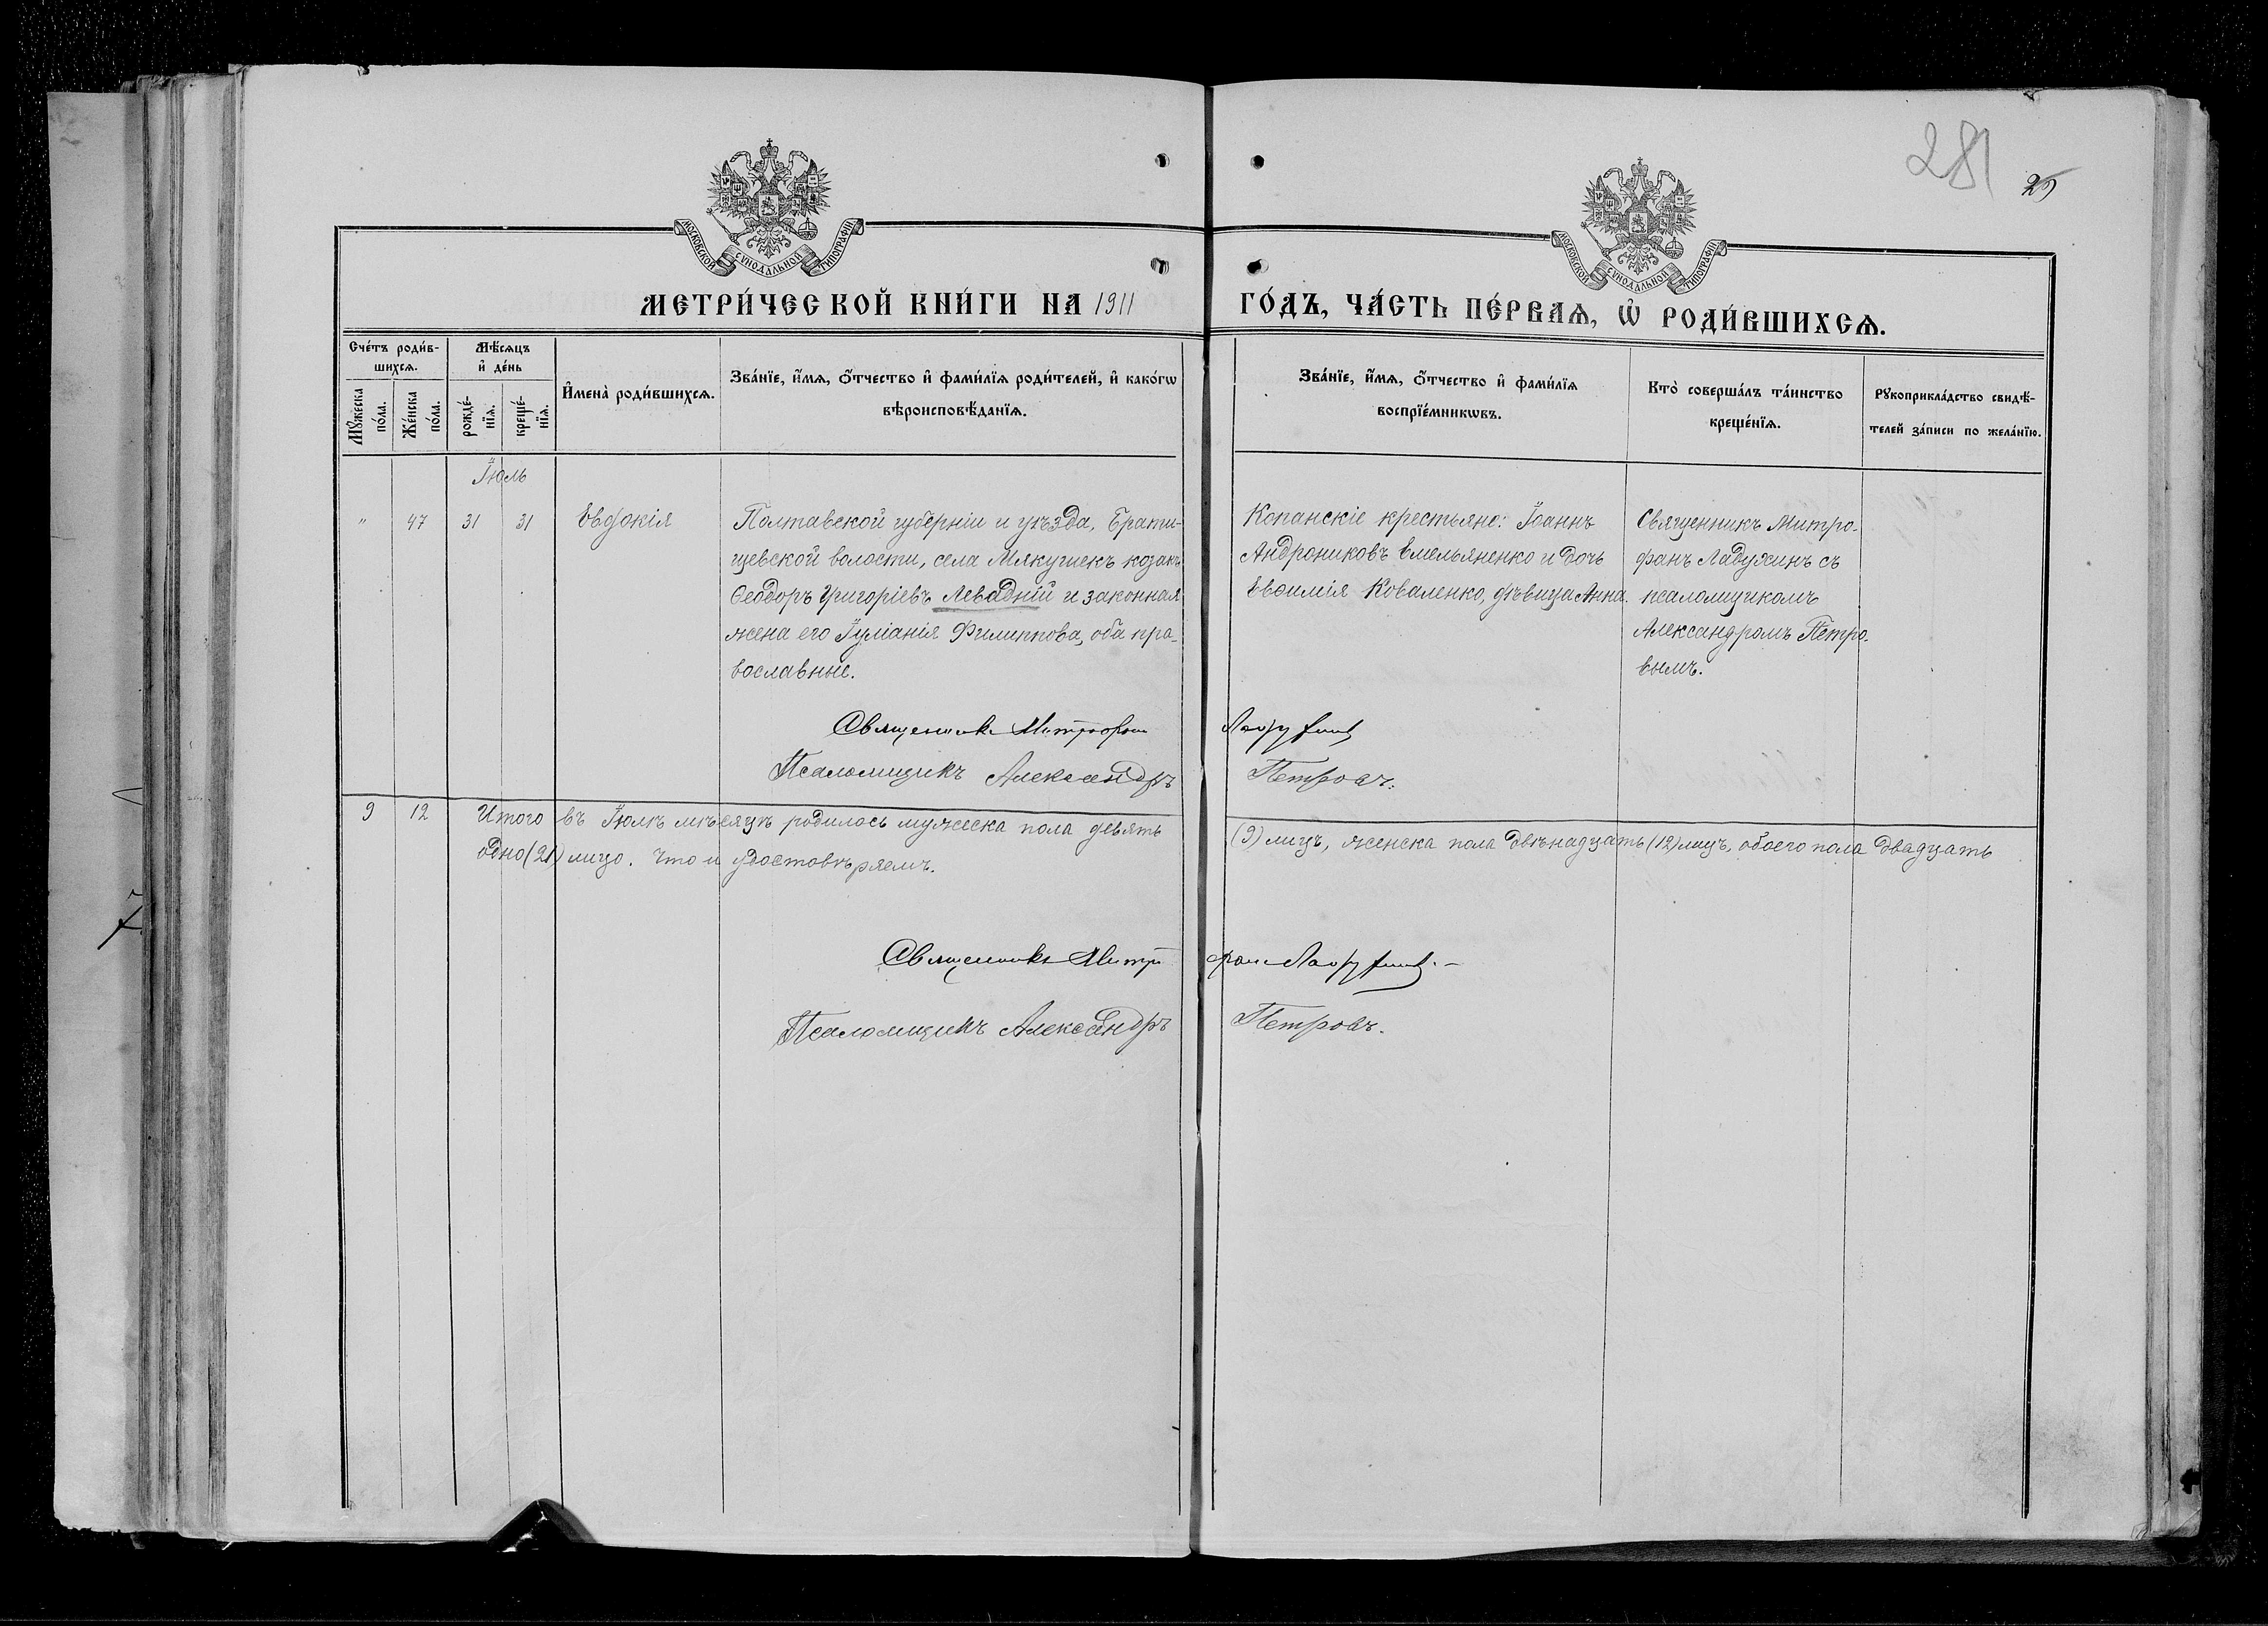 281
25
МОСКОВСКОЙ СѴНОДАЛЬНОЙ ТИПОГРАФІИ
МОСКОВСКОЙ СѴНОДАЛЬНОЙ ТИПОГРАФІИ
МЕТРИ́ЧЕСКОЙ КНИ́ГИ НА 1911
ГО́ДЪ, ЧА́СТЬ ПЕ́РВАѦ, Ѡ҆ РОДИ́ВШИХСѦ.
Сче́тъ роди́в-
шихсѧ.
Мꙋ́жеска
по́ла.
Же́нска
по́ла.
Мѣ́сѧцъ
и҆ де́нь
рожде́-
нїѧ.
креще́-
нїѧ.
И҆мена̀ роди́вшихсѧ.
Зва́нїе, и҆́мѧ, ѻ҆́тчество и҆ фами́лїѧ роди́телей, и҆ како́гѡ
вѣроисповѣ́данїѧ.
Зва́нїе, и҆́мѧ, ѻ҆́тчество и҆ фами́лїѧ
воспрїе́мникѡвъ.
Кто̀ соверша́лъ та́инство
креще́нїѧ.
Рꙋкоприкла́дство свидѣ́-
телей за́писи по жела́нїю.
Іюль
" 47 31 31 Евдокія
Полтавской губерніи и уѣзда, Брати-
щевской волости, села Мякушекъ козакъ
Ѳеодоръ Григоріевъ Левадній и законная
жена его Іуліанія Филиппова, оба пра-
вославные.
Копанскіе крестьяне: Іоаннъ
Андрониковъ Емельяненко и дочь
Евѳимія Коваленко, дѣвица Анна.
Священникъ Митро-
фанъ Ладухинъ съ
псаломщикомъ
Александромъ Петро-
вымъ.
Священникъ Митрофанъ Ладухинъ
Псаломщикъ Александръ Петровъ.
9 12 Итого въ Іюлѣ мѣсяцѣ родилось мужеска пола девять (9) лицъ, женска пола двѣнадцать (12) лицъ, обоего пола двадцать
одно (21) лицо. Что и удостовѣряемъ.
Священникъ Митрофанъ Ладухинъ.
Псаломщикъ Александръ Петровъ.